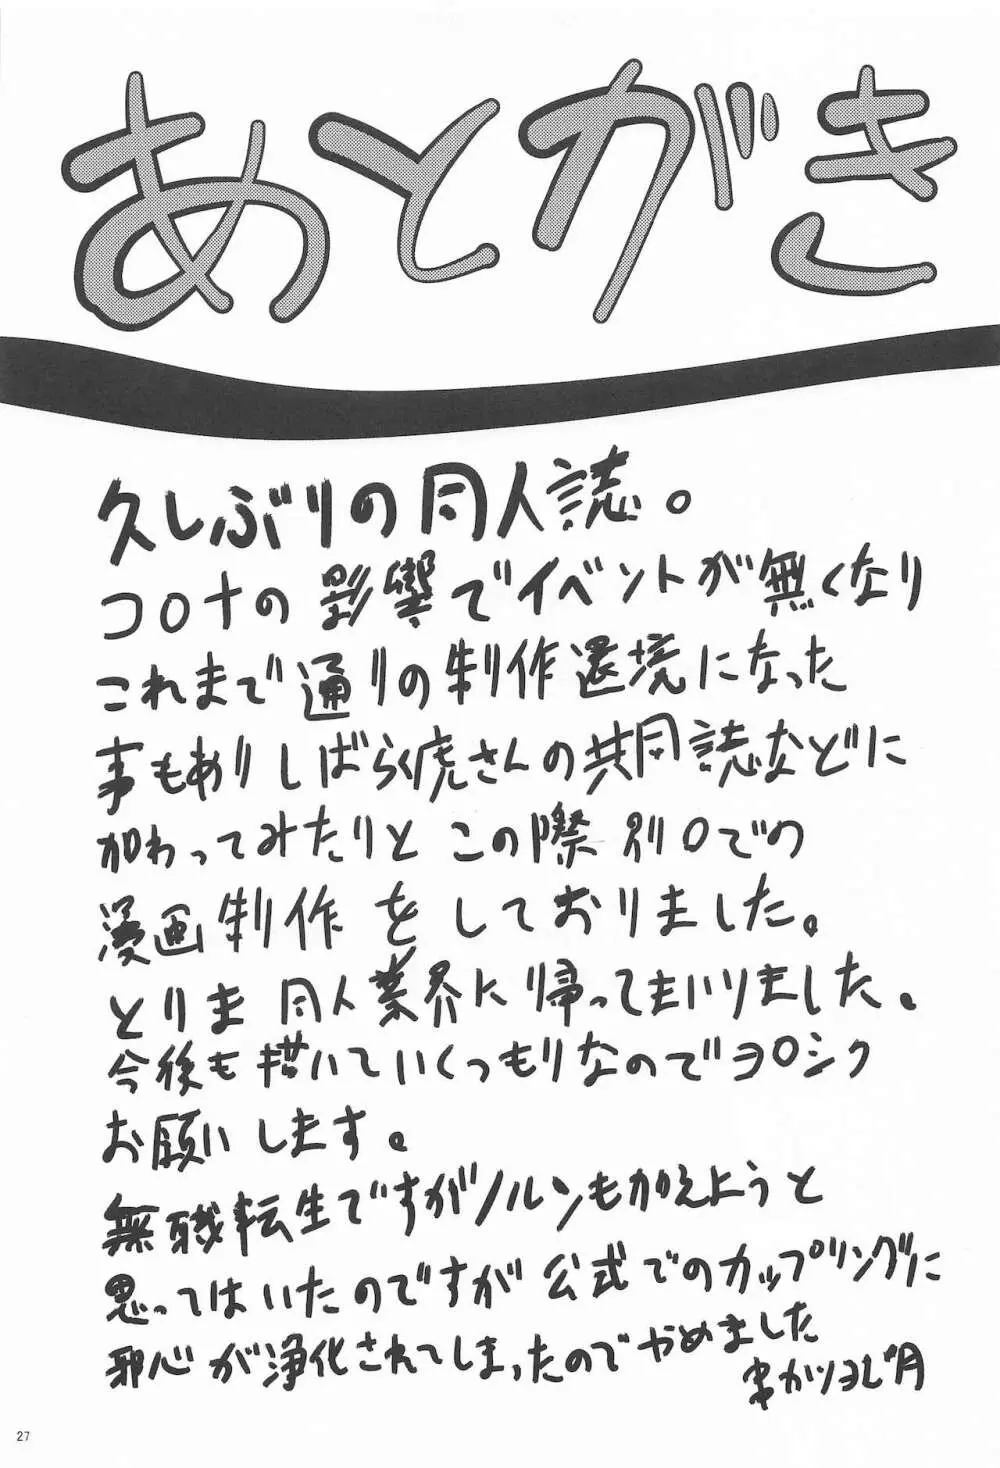 あとがき
久しぶりの同人誌。
コロナの影響でイベントが無くなり
これまで通りの制作環境になった
事もありしばらく虎さんの共同誌などに
加わってみたりと この際 別口での
漫画制作 をしておりました。
とりま 同人業界に帰ってまいりました。
今後も描いていくつもりなのでヨロシク
お願いします。
無職転生ですがノルンも加えようと
思ってはいたのですが 公式でのカップリングに
邪心が浄化されてしまったのでやめました
串カツヨし月
27